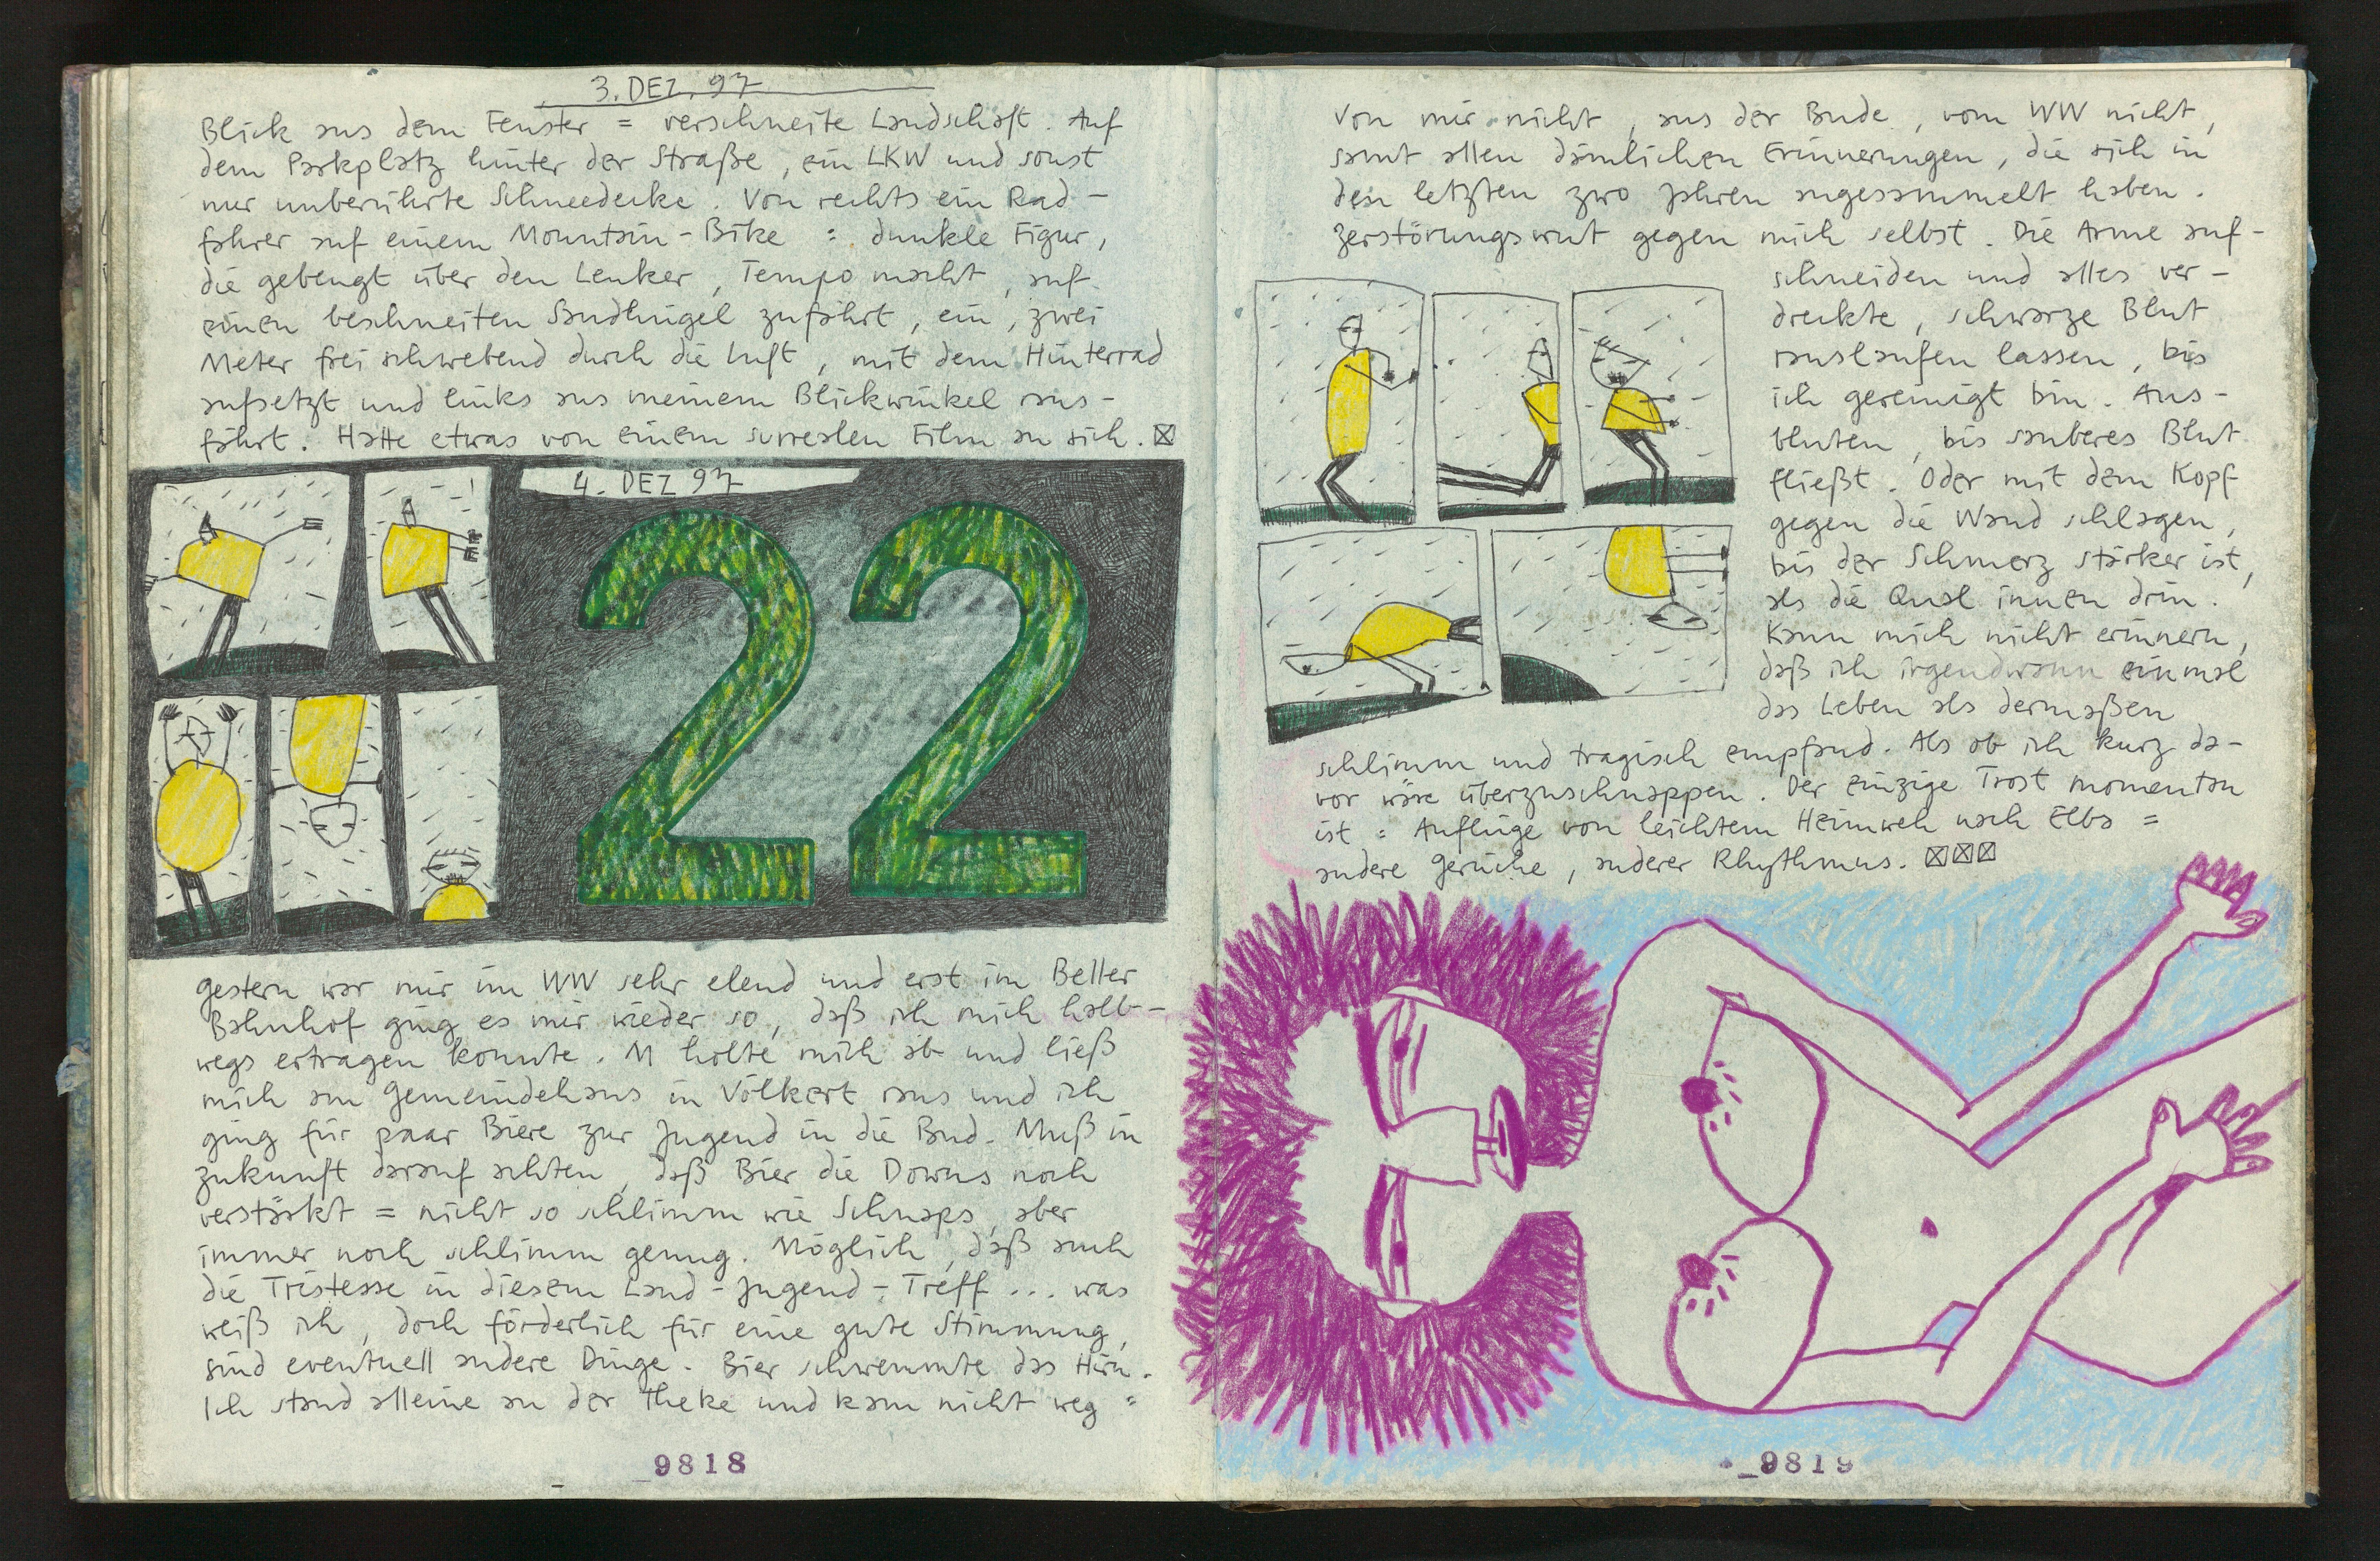 3. DEZ. 97
Blick aus dem Fenster = verschneite Landschaft. Auf
dem Parkplatz hinter der Straße, ein LKW und sonst
nur unberührte Schneedecke. Von rechts ein Rad-
fahrer auf einem Mountain-Bike = dunkle Figur,
die gebeugt über den Lenker, Tempo macht, auf
einen beschneiten Sandhügel zufährt, ein, zwei
Meter frei schwebend durch die Luft, mit dem Hinterrad
aufsetzt und links aus meinem Blickwinkel raus-
fährt. Hatte etwas von einem surrealen Film an sich.
4. DEZ 97
22
Gestern war mir im WW sehr elend und erst im Beller
Bahnhof ging es mir wieder so, daß ich mich halb-
wegs ertragen konnte. M holte mich ab und ließ
mich am Gemeindehaus in Völkert raus und ich
ging für paar Biere zur Jugend in die Bud. Muß in
Zukunft darauf achten, daß Bier die Downs noch
verstärkt = nicht so schlimm wie Schnaps, aber
immer noch schlimm genug. Möglich, daß auch
die Tristesse in diesem Land-Jugend-Treff... was
weiß ich, doch förderlich für eine gute Stimmung,
sind eventuell andere Dinge. Bier schwemmte das Hirn.
Ich stand alleine an der Theke und kam nicht weg =
9818
Von mir nicht, aus der Bude, vom WW nicht,
samt allen dämlichen Erinnerungen, die sich in
den letzten zwo Jahren angesammelt haben.
Zerstörungswut gegen mich selbst. Die Arme auf-
schneiden und alles ver-
dreckte, schwarze Blut
rauslaufen lassen, bis
ich gereinigt bin. Aus-
bluten, bis sauberes Blut
fließt. Oder mit dem Kopf
gegen die Wand schlagen,
bis der Schmerz stärker ist,
als die Qual innen drin.
Kann mich nicht erinnern,
daß ich irgendwann einmal
das Leben als dermaßen
schlimm und tragisch empfand. Als ob ich kurz da-
vor wäre überzuschnappen. Der einzige Trost momentan
ist = Anflüge von leichtem Heimweh nach Elba =
andere Gerüche, anderer Rhythmus.
9819